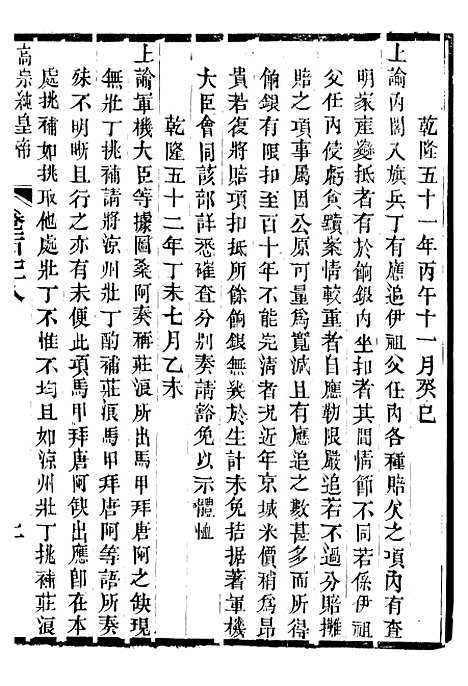 乾隆五十一年丙午十一月癸巳
上諭內閣入旗兵丁有應追伊祖父任內各種賠欠之項內有查
明家產變抵者有於餉銀內坐扣者其間情節不同若係伊祖
父任內侵虧貪黷案情較重者自應勒限嚴追若不過分賠攤
賠之項事屬因公原可量爲寬減且有應追之數甚多而所得
餉銀有限扣至百十年不能完清者況近年京城米價稍爲昂
貴若復將賠項扣抵所餘餉銀無幾於生計未免拮据著軍機
大臣會同該部詳悉確查分別奏請豁免以示體恤
乾隆五十二年丁未七月乙未
上諭軍機大臣等據圖桑阿奏稱莊浪所出馬甲拜唐阿之缺現
無壯丁挑補請將涼州壯丁酌補莊浪馬甲拜唐阿等語所奏
殊不明晰且行之亦有未便此項馬甲拜唐阿缺出應卽在本
處挑補如挑取他處壯丁不惟不均且如涼州壯丁挑補莊浪
高宗純皇帝